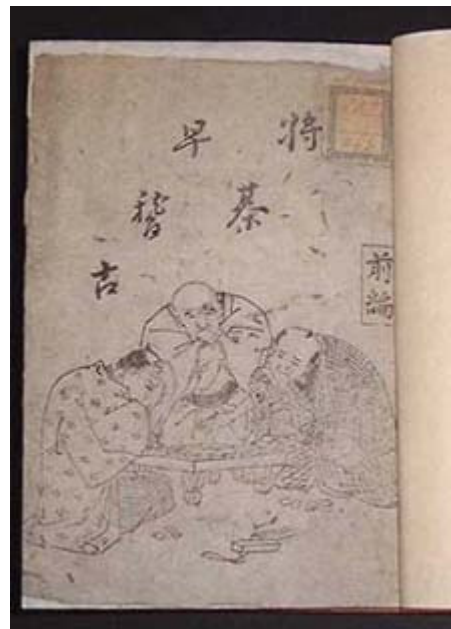 将棊
早稽古
前編